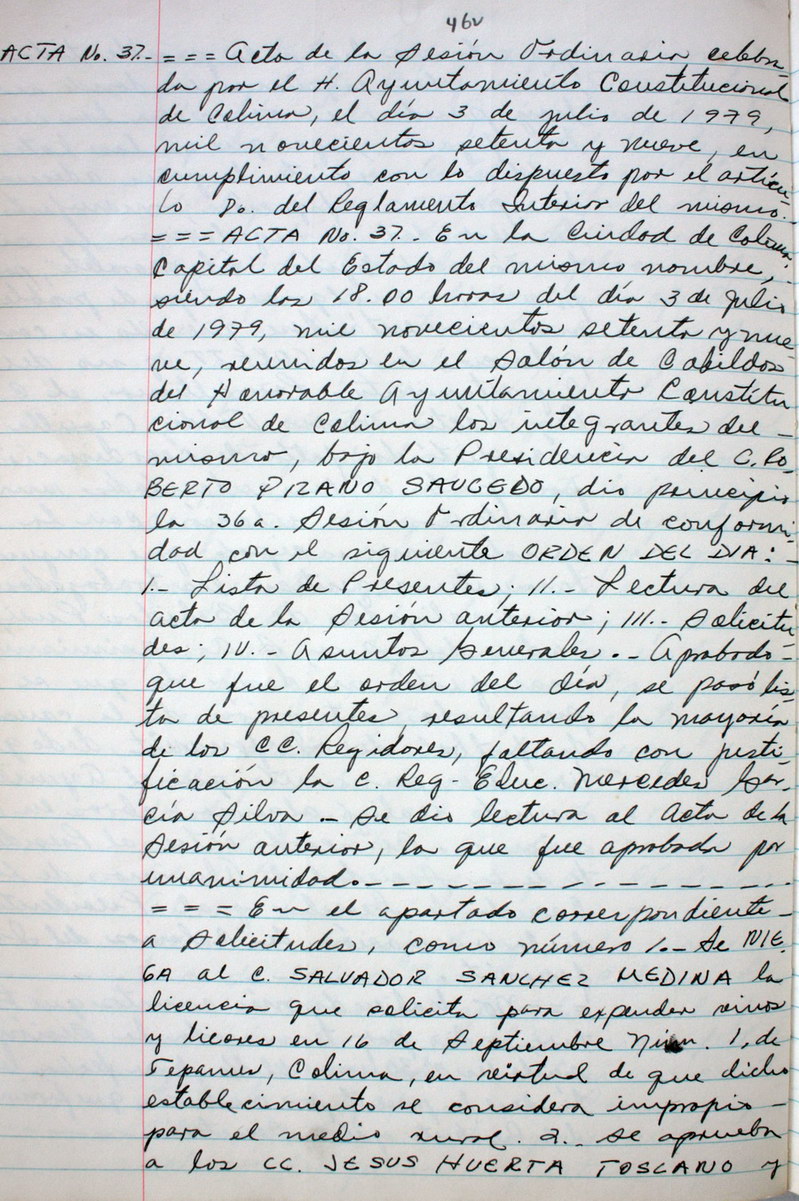 46v
ACTA No. 37.- = = = Acta de la Sesión Ordinaria celebra
da por el H. Ayuntamiento Constitucional
de Colima, el día 3 de julio de 1979,
mil novecientos setenta y nueve, en
cumplimiento con lo dispuesto por el artícu
lo 8o. del Reglamento Interior del mismo.
= = = ACTA No. 37.- En la Ciudad de Colima,
Capital del Estado del mismo nombre,
siendo las 18.00 horas del día 3 de julio
de 1979, mil novecientos setenta y nue
ve, reunidos en el Salón de Cabildos
del Honorable Ayuntamiento Constitu
cional de Colima los integrantes del -
mismo, bajo la Presidencia del C. RO-
BERTO PIZANO SAUCEDO, dio principio
la 36a. Sesión Ordinaria de conformi
dad con el siguiente ORDEN DEL DIA: -
I.- Lista de Presentes; II.- Lectura del
acta de la Sesión anterior; III.- Solicitu
des; IV.- Asuntos Generales.- Aprobado -
que fue el orden del día, se pasó lis-
ta de presentes, resultando la mayoría
de los CC. Regidores, faltando con justi-
ficación la C. Reg- Educ. Mercedes Gar-
cía Silva.- Se dio lectura al Acta de la
Sesión anterior, la que fue aprobada por
unanimidad.- - - - - - - - - - - - - - -
= = = En el apartado correspondiente -
a Solicitudes, como número 1.- Se NIE-
GA al C. SALVADOR SANCHEZ MEDINA la
licencia que solicita para expender vinos
y licores en 16 de Septiembre Núm. 1, de
Tepames, Colima, en virtud de que dicho
establecimiento se considera impropio -
para el medio rural. 2.- Se aprueba
a los CC. JESUS HUERTA TOSCANO y